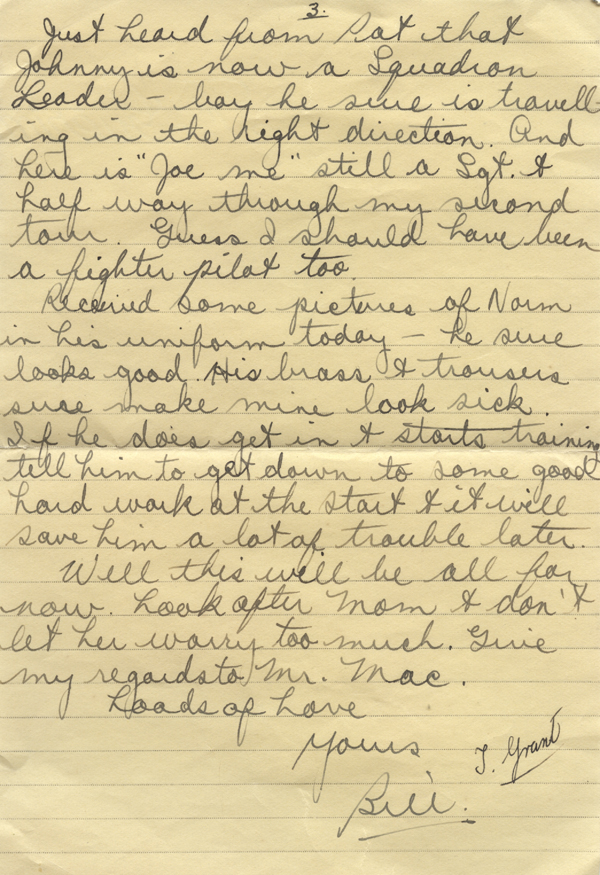 3.
Just heard from Pat that
Johnny is now a Squadron
Leader - boy he sure is travell-
ing in the right direction. And
here is "Joe me" still a Sgt. &
half way through my second
tour. Guess I should have been
a fighter pilot too.
Received some pictures of Norm
in his uniform today - he sure
looks good. His brass & trousers
sure make mine look sick.
If he does get in & starts training
tell him to get down to some good
hard work at the start & it will
save him a lot of trouble later.
Well this will be all for
now. Look after Mom & don't
let her worry too much. Give
my regards to Mr. Mac.
Loads of Love
Yours
Bill.
T. Grant